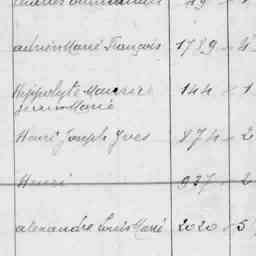 adrien Marié François 1789 4
Hyppolyte Maurice 144 1
Marie
Henri Joseph Yves 874 2
Henri 937 2
alexandre Louis Marié 2020 5